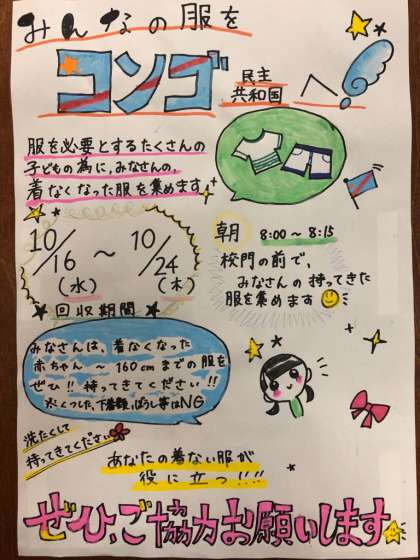 みんなの服を
コンゴ
民主
共和国
へ!
服を必要とするたくさんの
子どもの為に、みなさんの、
着なくなった服を集めます
10/16(水)～10/24(木)
回収期間
朝 8:00～8:15
校門の前で、
みなさんの持ってきた
服を集めます
みなさんは、着なくなった
赤ちゃん～160cmまでの服を
ぜひ!!持ってきてください!!
※くつした、下着類、ぼうし等はNG
洗たくして
持ってきてください
あなたの着ない服が
役に立つ!!!!
ぜひ、ご協力お願いします